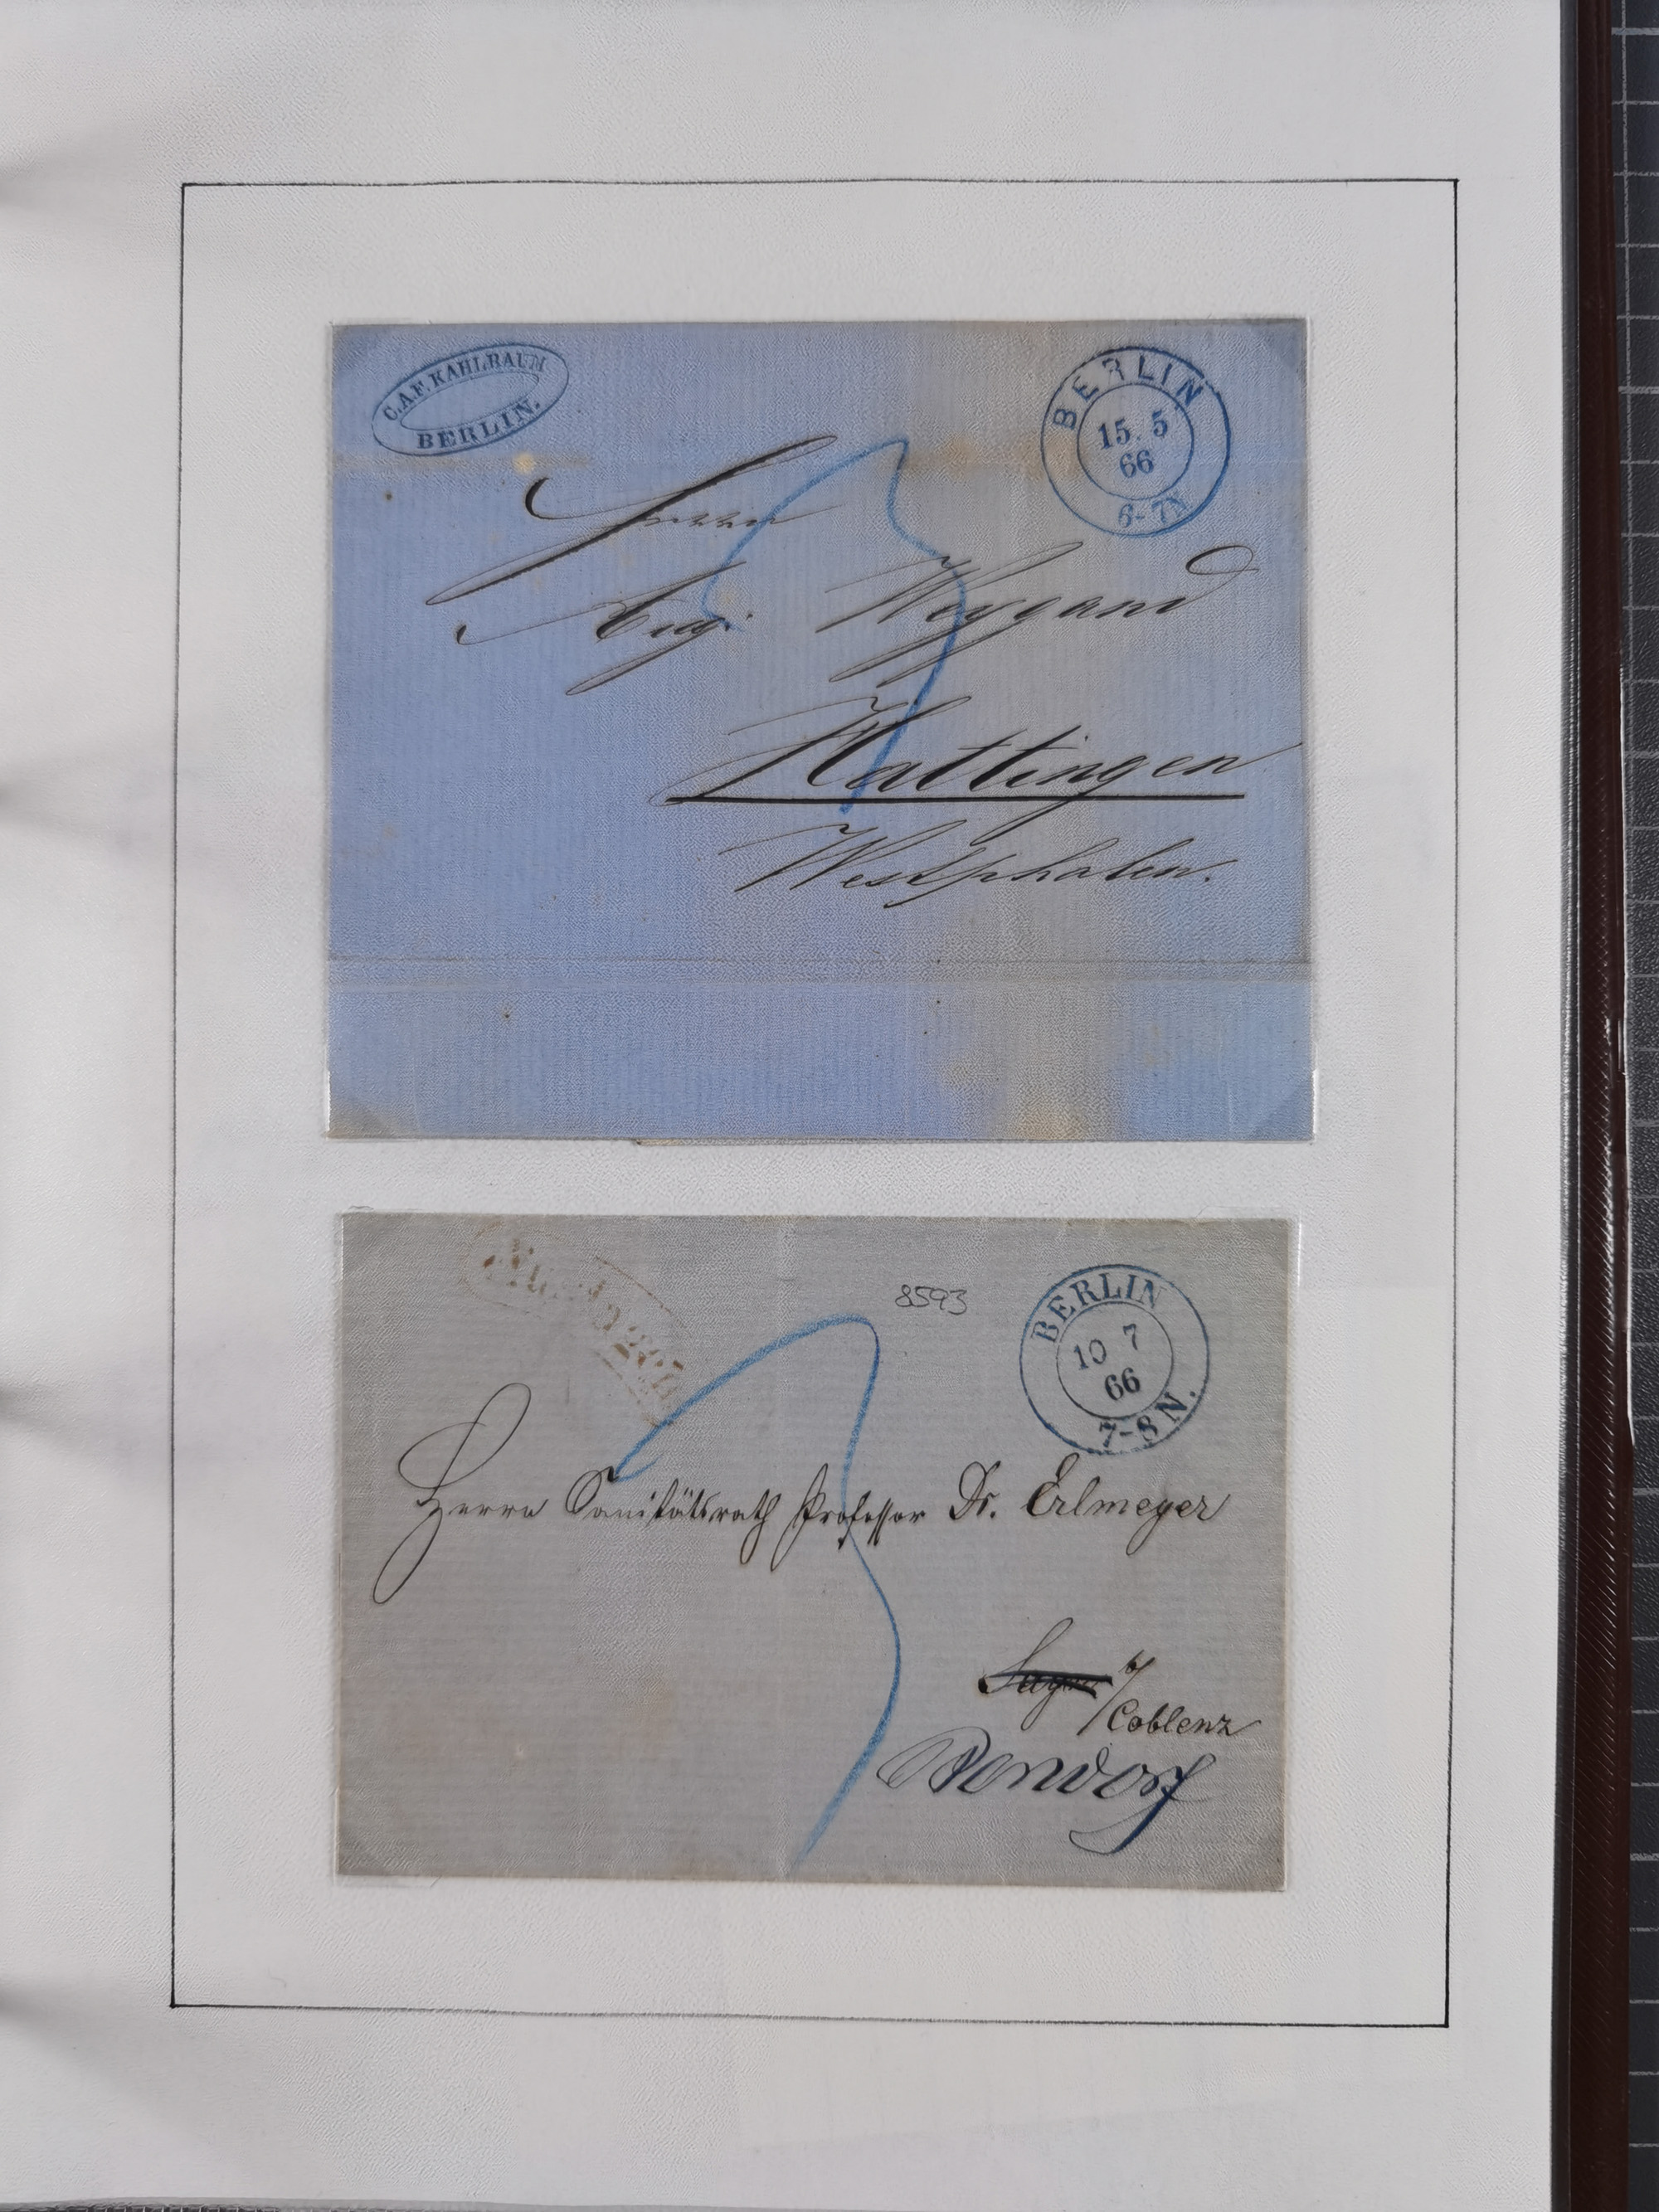 C.A.F. KAHLBAUM
BERLIN.
BERLIN
15. 5
66
6-7N
Herrn
Aug. Weygand
Hattingen
Westphalen.
8593
BERLIN
10 7
66
7-8N.
Herrn Sanitätsrath Professor Dr. Erlmeyer
Sayn b/
Coblenz
Bendorf